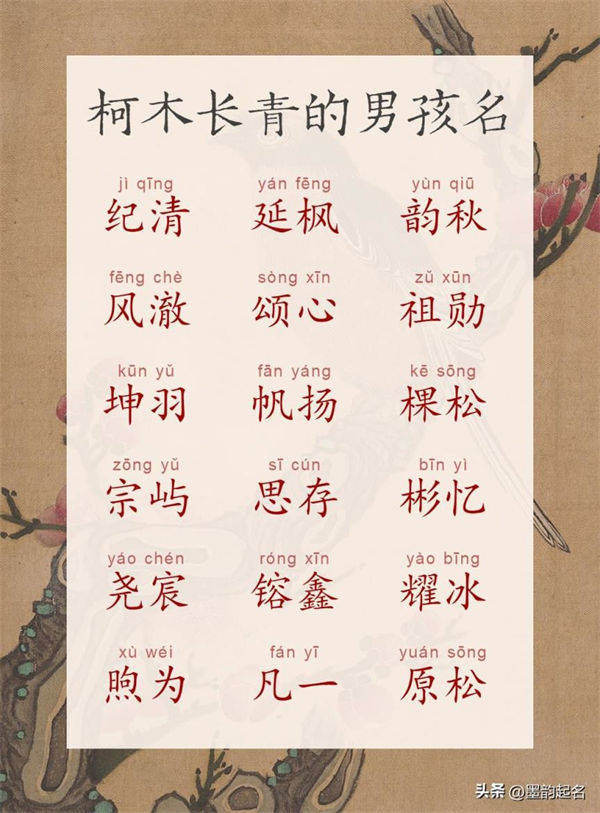 柯木长青的男孩名
jì qīng yán fēng yùn qiū
纪清 延枫 韵秋
fēng chè sòng xīn zǔ xūn
风澈 颂心 祖勋
kūn yǔ fān yáng kē sōng
坤羽 帆扬 棵松
zōng yǔ sī cún bīn yì
宗屿 思存 彬忆
yáo chén róng xīn yào bīng
尧宸 镕鑫 耀冰
xù wéi fán yī yuán sōng
煦为 凡一 原松
头条 @墨韵起名